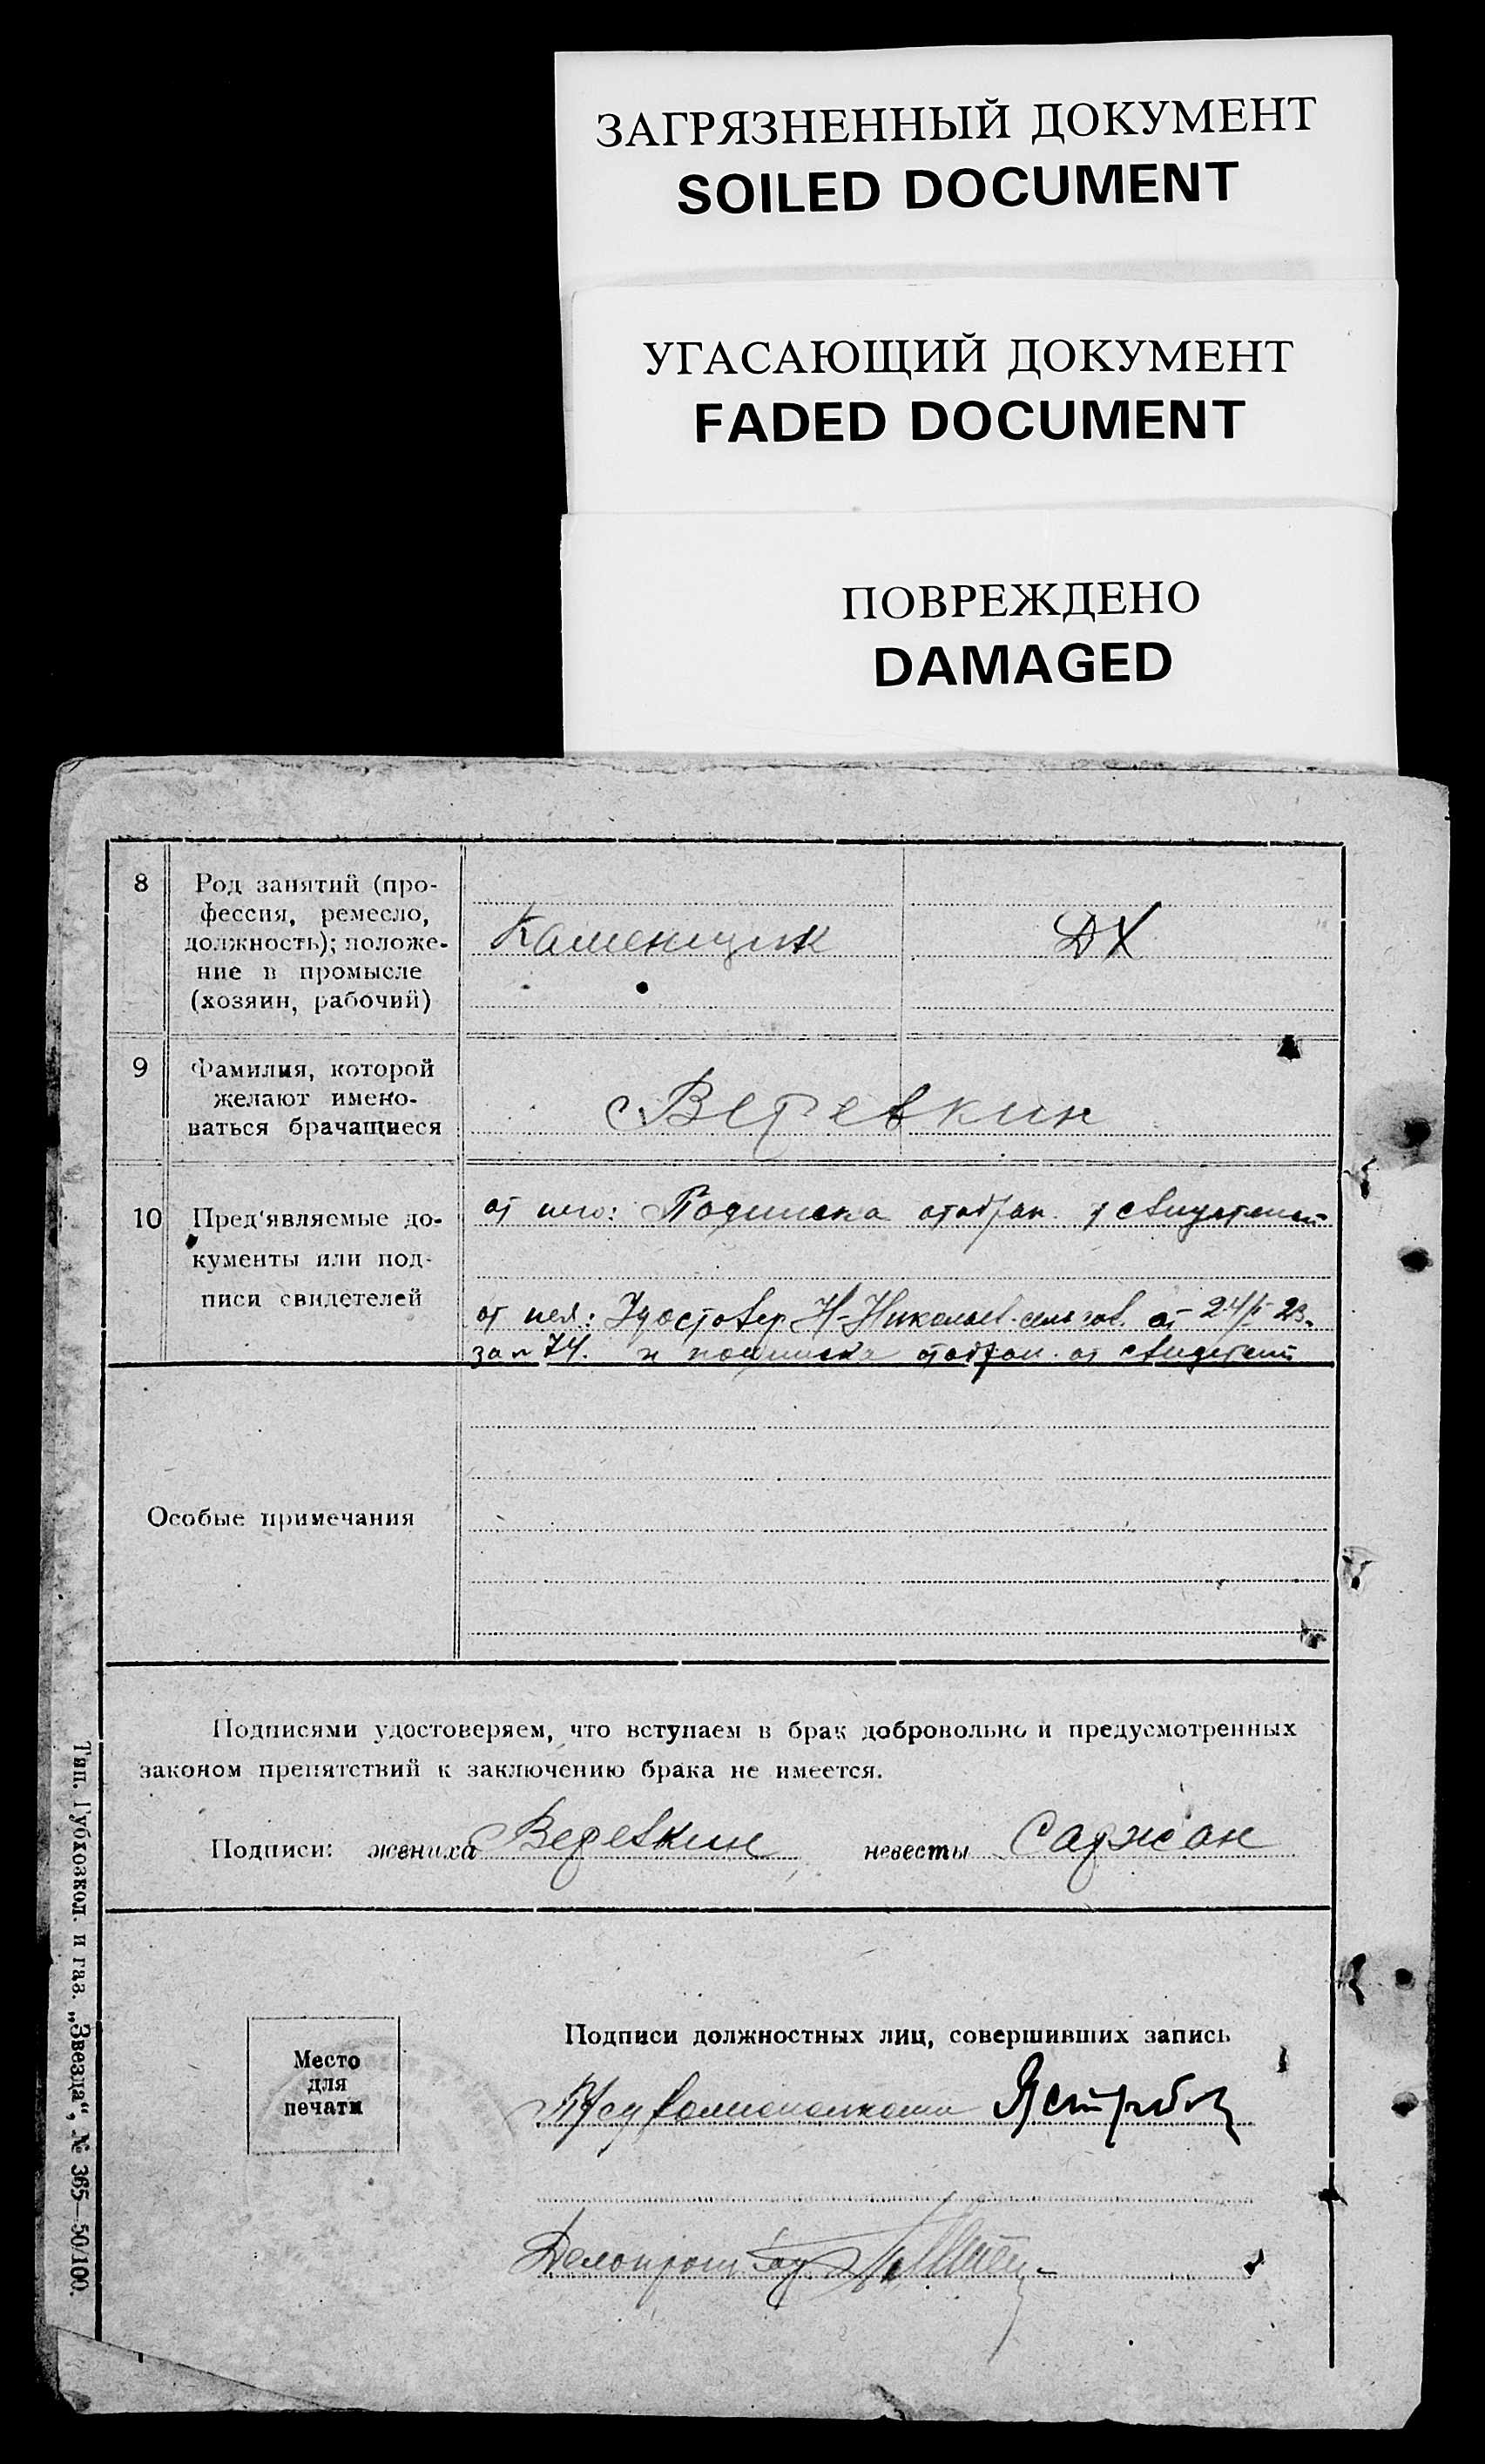 ЗАГРЯЗНЕННЫЙ ДОКУМЕНТ
SOILED DOCUMENT
УГАСАЮЩИЙ ДОКУМЕНТ
FADED DOCUMENT
ПОВРЕЖДЕНО
DAMAGED
8
Род занятий (про-
фессия, ремесло,
должность); положе-
ние в промысле
(хозяин, рабочий)
Каменщик
ДХ
9
Фамилия, которой
желают имено-
ваться брачащиеся
Веревкин
10
Пред'являемые до-
кументы или под-
писи свидетелей
от него: Подписка отобран. у свидетелей
от нея: Удостовер Н-Николаев. сель сов. от 24/
за № 74. и подписка отобран. от свидетелей
Особые примечания
Подписями удостоверяем, что вступаем в брак добровольно и предусмотренных
законом препятствий к заключению брака не имеется.
Подписи: жениха Веревкин невесты Саржан
Место
для
печати
Подписи должностных лиц, совершивших запись
Делопроизвод
Тип. Губхозкол. и газ. „Звезда“, № 365—50/100.